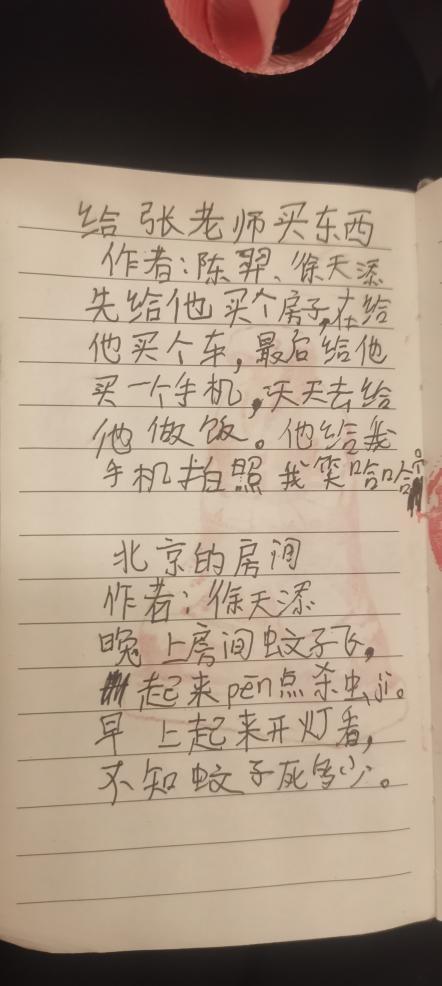 给张老师买东西
作者:陈羿、徐天添
先给他买个房子,在给
他买个车,最后给他
买一个手机,天天去给
他做饭。他给我
手机拍照我笑哈哈。
北京的房间
作者:徐天添
晚上房间蚊子飞,
起来pēn点杀虫jì。
早上起来开灯看,
不知蚊子死多少。